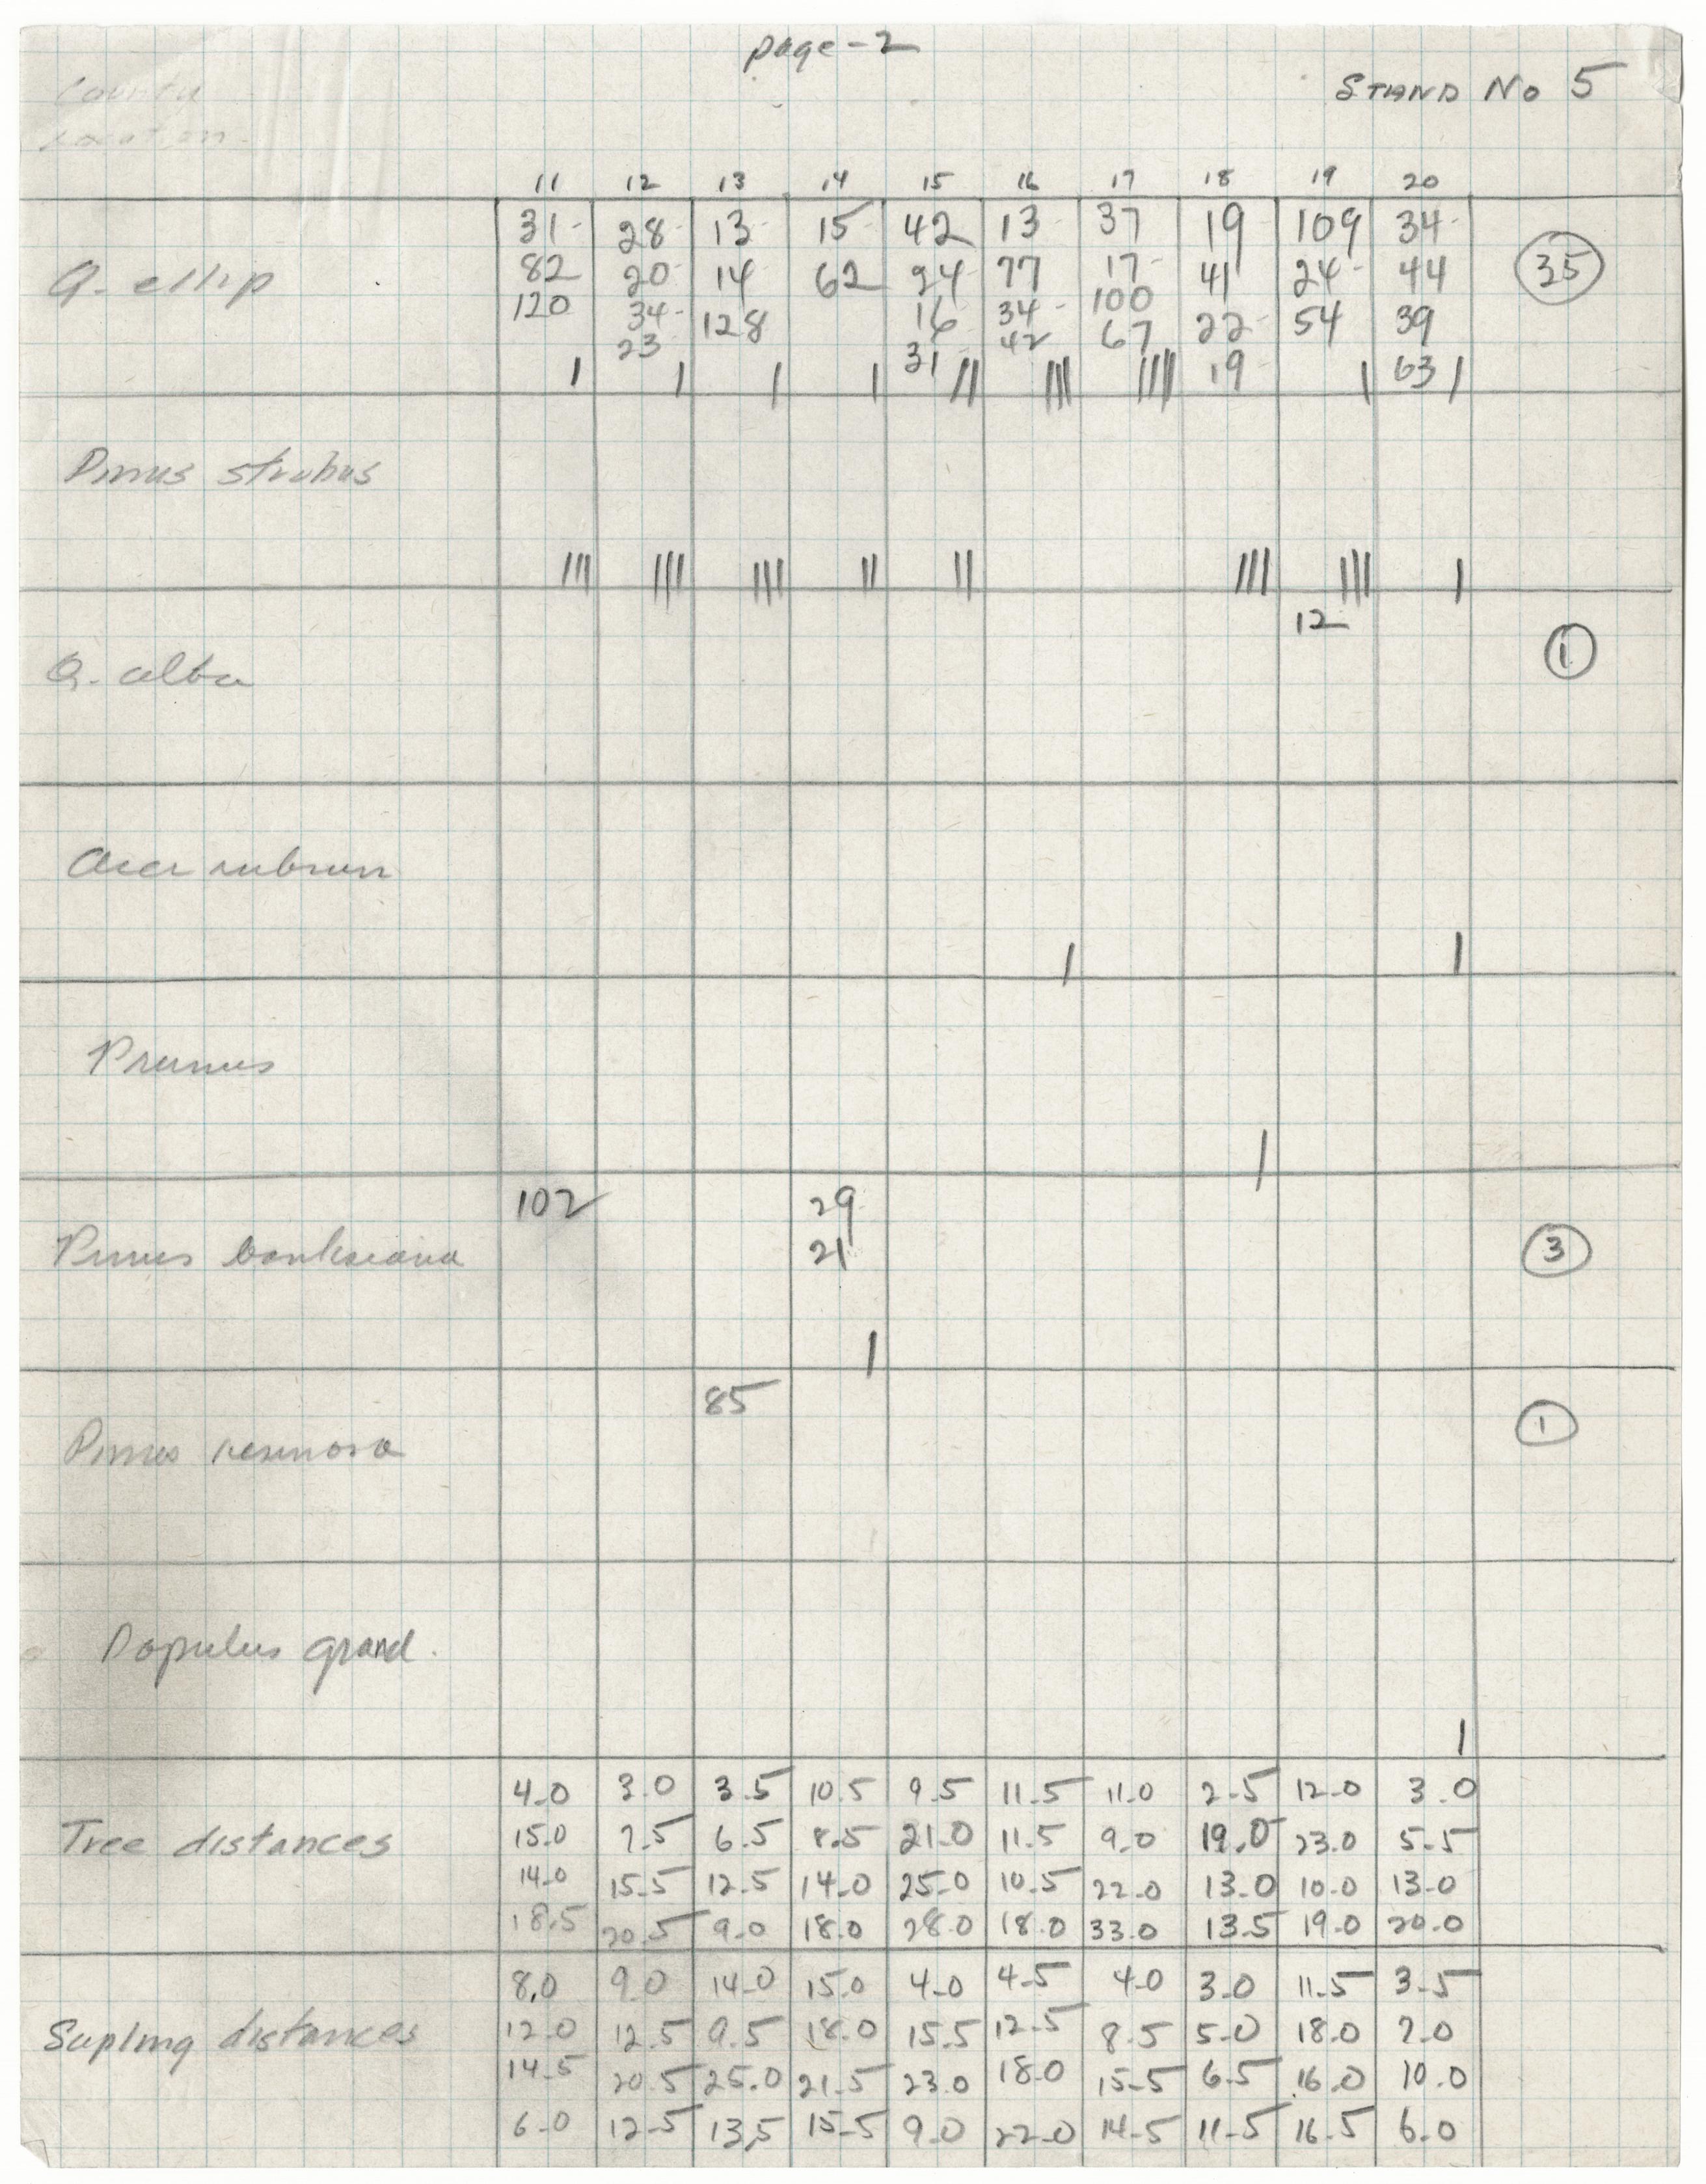 page-2
STAND No 5
County
Location
11 12 13 14 15 16 17 18 19 20
31- 28- 13- 15- 42 13- 37 19 109 34-
Q. ellip 82 20- 14 62 94- 77 17- 41 24- 44 35
120 34- 128 16 34- 100 22- 54 39
23- 31- 42 67 19 63
| | | | || ||| |||| | |
Pinus strobus
||| |||| |||| || || |||| |||| |
12
Q. alba 1
Acer rubrum
| |
Prunus
|
102 29
Pinus banksiana 21 3
|
85
Pinus resinosa 1
Populus grand.
|
4.0 3.0 3.5 10.5 9.5 11.5 11.0 2.5 12.0 3.0
Tree distances 15.0 7.5 6.5 8.5 21.0 11.5 9.0 19.0 23.0 5.5
14.0 15.5 12.5 14.0 25.0 10.5 22.0 13.0 10.0 13.0
18.5 20.5 9.0 18.0 28.0 18.0 33.0 13.5 19.0 20.0
8.0 9.0 14.0 15.0 4.0 4.5 4.0 3.0 11.5 3.5
Sapling distances 12.0 12.5 9.5 18.0 15.5 12.5 8.5 5.0 18.0 7.0
14.5 20.5 25.0 21.5 23.0 18.0 15.5 6.5 16.0 10.0
6.0 12.5 13.5 15.5 9.0 22.0 14.5 11.5 16.5 6.0